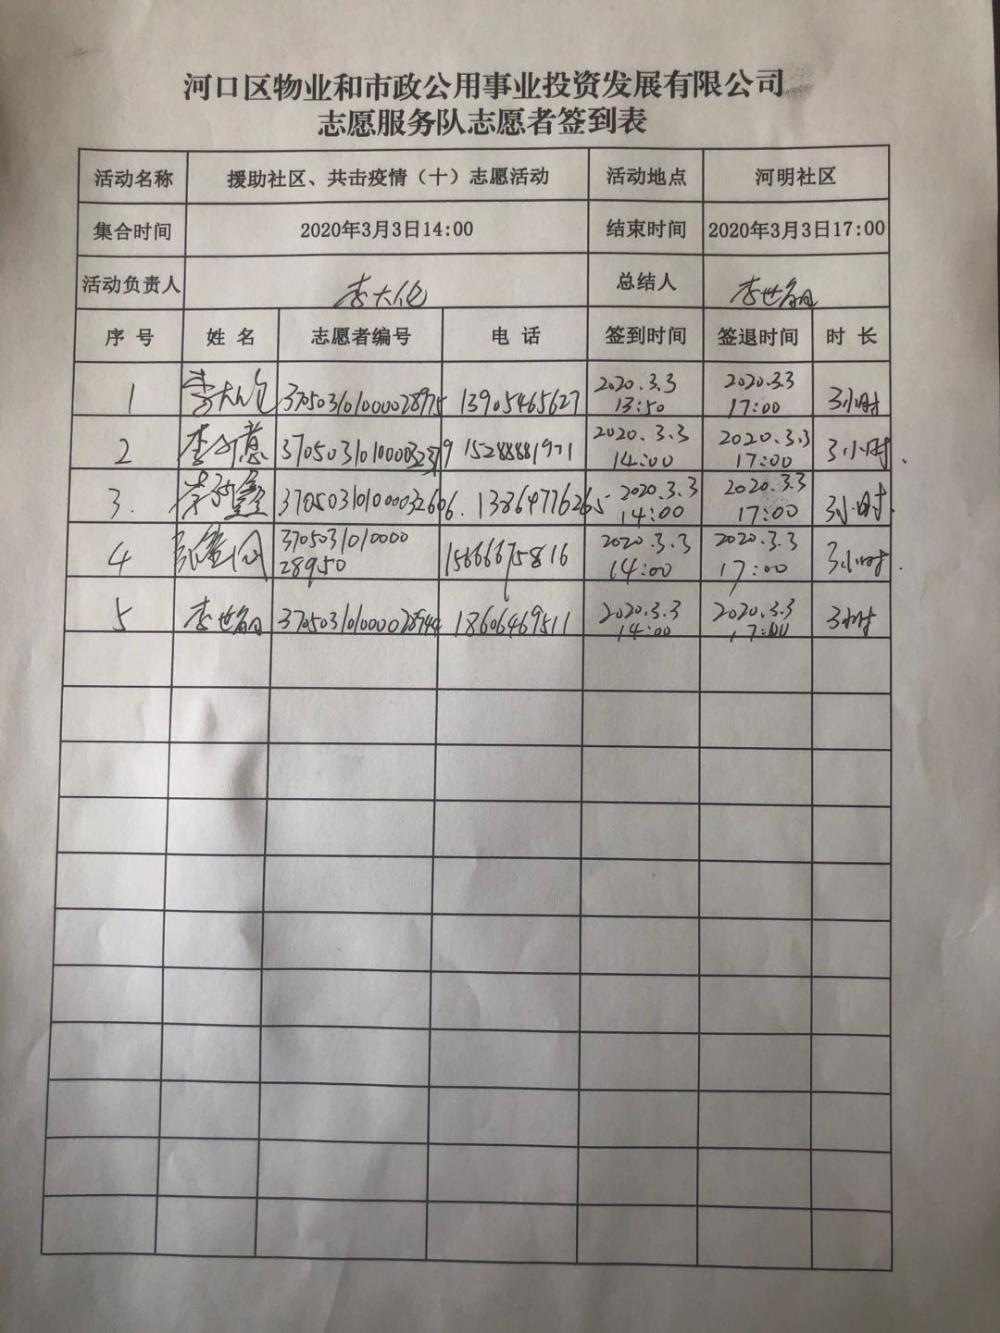 河口区物业和市政公用事业投资发展有限公司
志愿服务队志愿者签到表
活动名称 援助社区、共击疫情（十）志愿活动 活动地点 河明社区
集合时间 2020年3月3日14:00 结束时间 2020年3月3日17:00
活动负责人 李大伦 总结人 李世朋
序 号 姓 名 志愿者编号 电 话 签到时间 签退时间 时 长
1 李大伦 370503101000028975 13905465627 2020.3.3 2020.3.3 3小时
13:50 17:00
2 李 15288881971 2020.3.3 2020.3.3 3小时.
14:00 17:00
3. 鑫 370503101000032606. 13864776265 2020.3.3 2020.3.3 3小时.
14:00 17:00
4 3705031010000 15666675816 2020.3.3 2020.3.3 3小时.
28950 14:00 17:00
5 李世朋 370503101000028944 18606469511 2020.3.3 2020.3.3 3小时
14:00 17:00